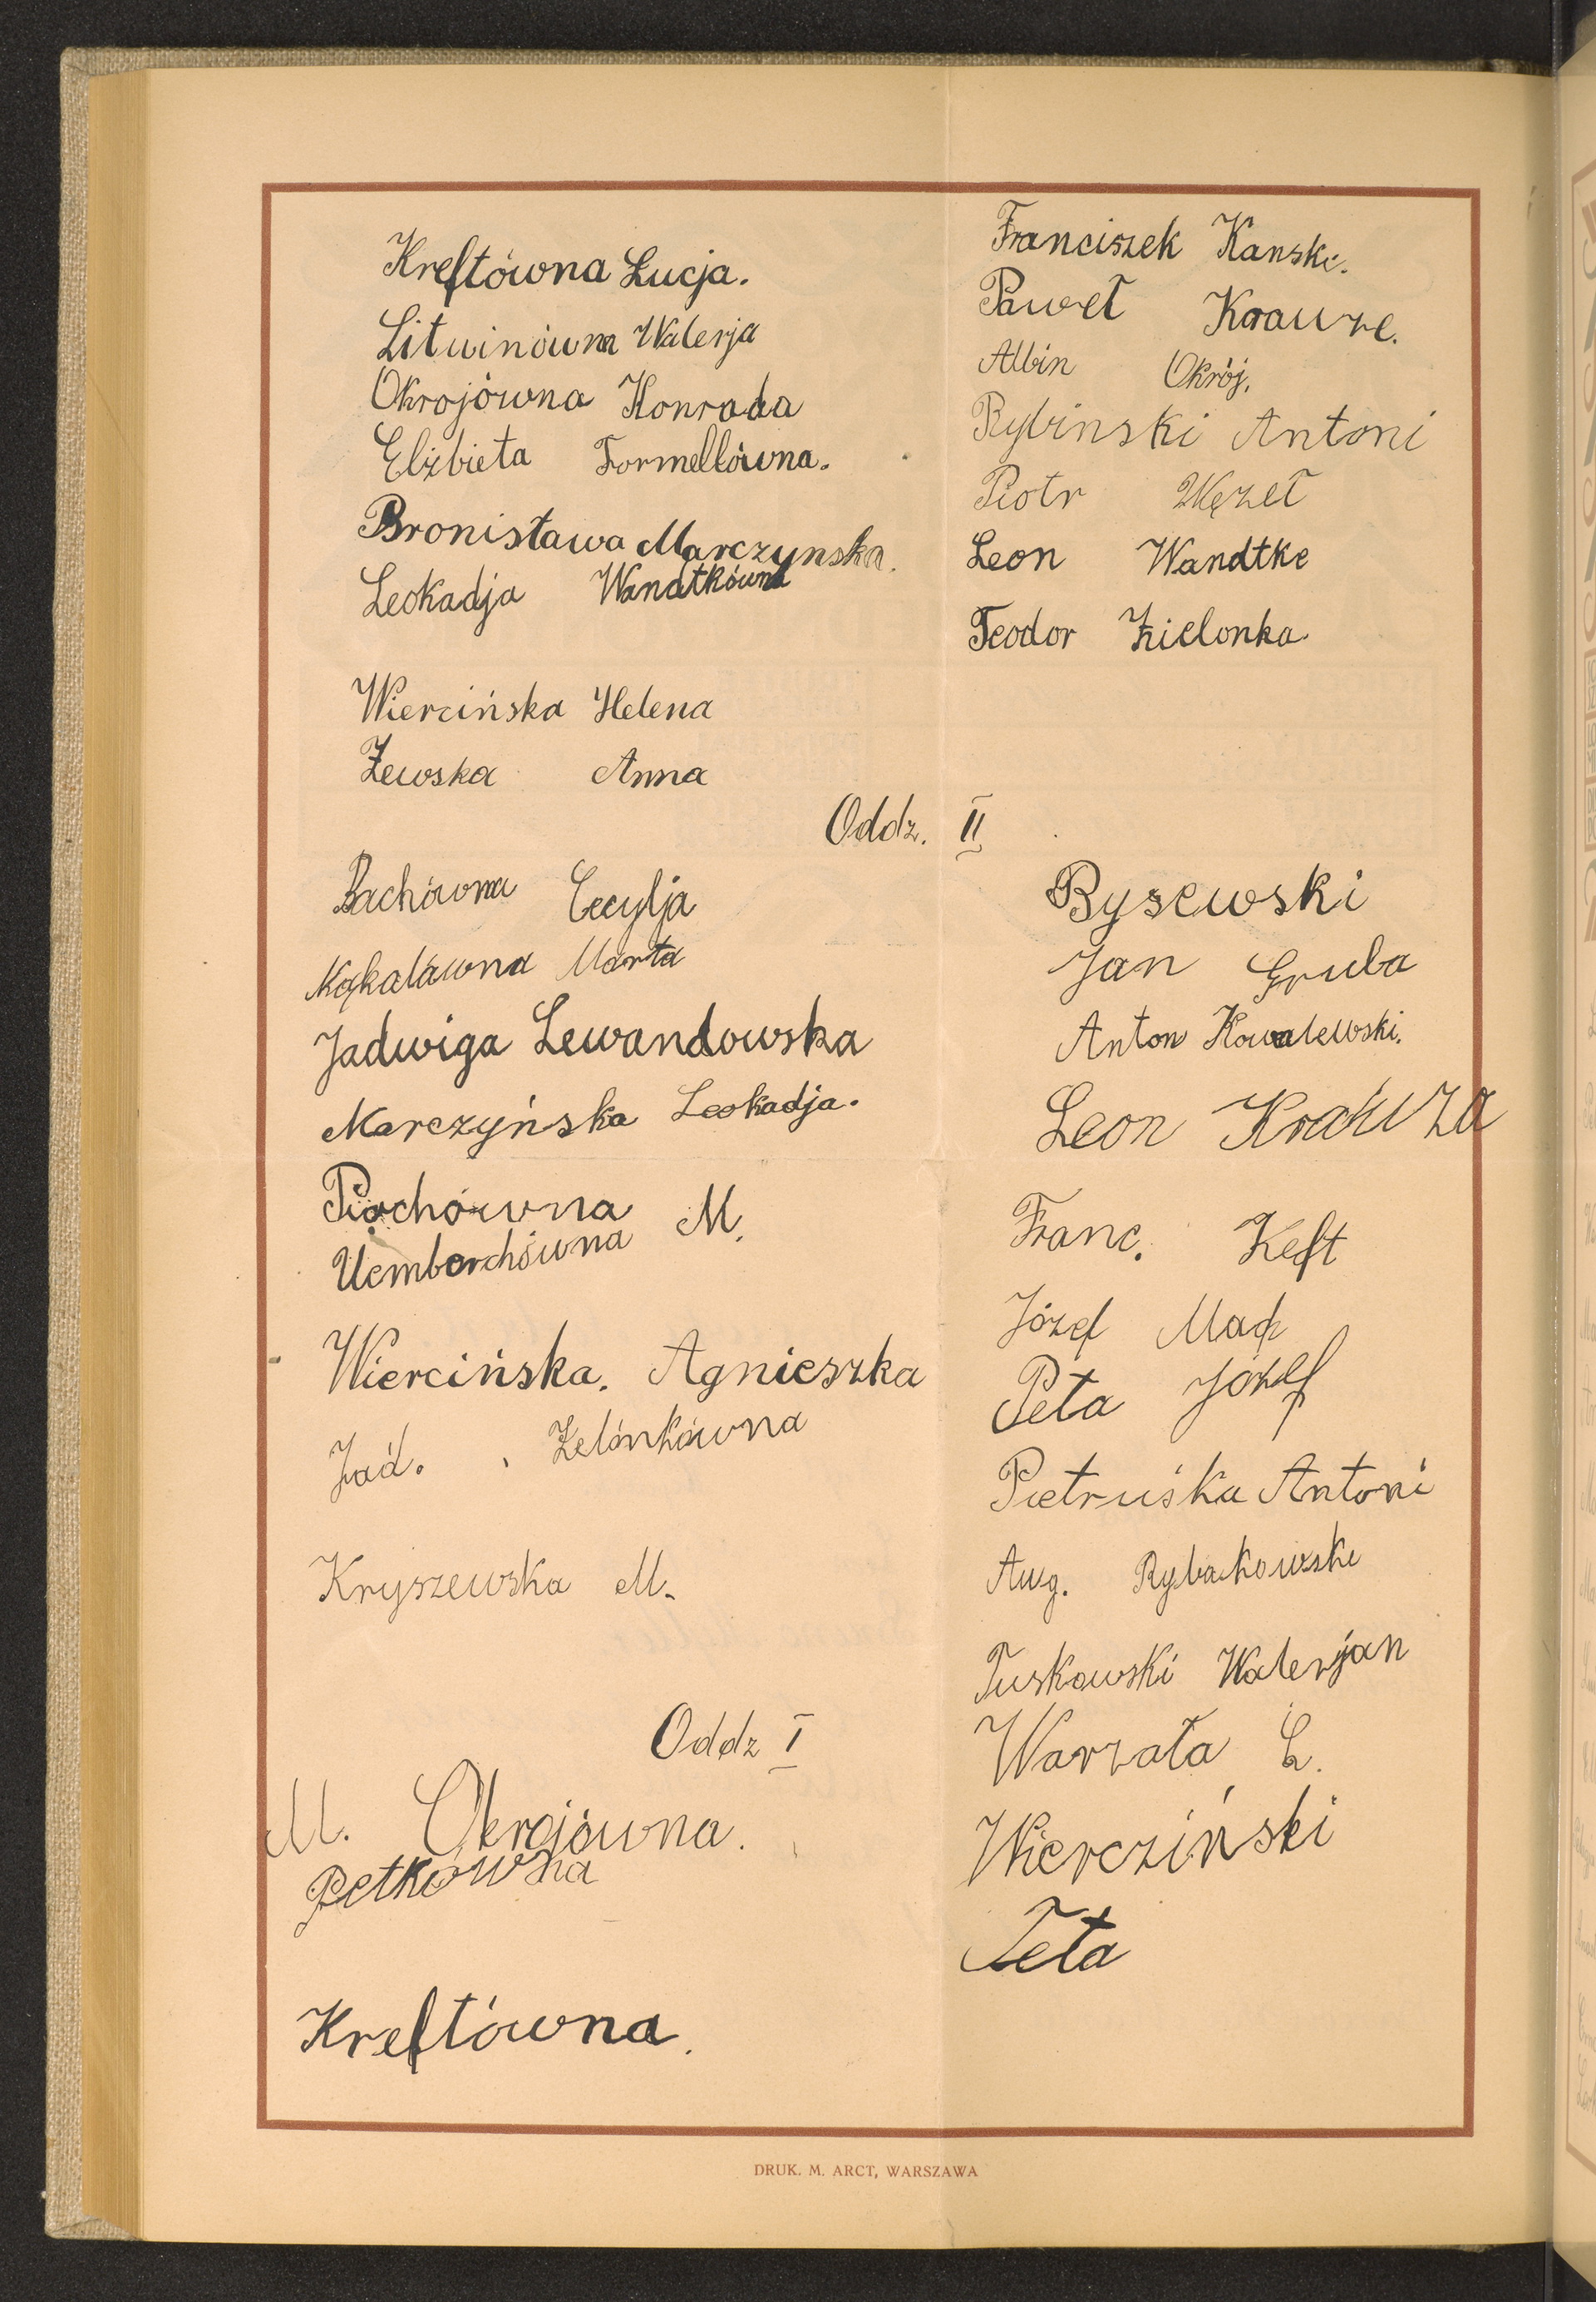 Kreftówna Łucja.
Litwinówna Walerja
Okrojówna Konrada
Elżbieta Formellówna.
Bronisława Marczynska.
Leokadja Wanatkówna
Wiercińska Helena
Żewska Anna
Franciszek Kanski.
Paweł Krauze.
Albin Okrój.
Rybinski Antoni
Piotr Węzeł
Leon Wandtke
Teodor Zielonka.
Oddz. II
Bachówna Cecylja
Kąkalówna Marta
Jadwiga Lewandowska
Marczyńska Leokadja.
Piochówna M.
Wiercińska. Agnieszka
Jad. Zelónkówna
Kryszewska M.
Bysewski
Jan Gruba
Anton Kowalewski.
Leon Krauza
Franc. Keft
Józef Mach
Peta Józef
Pietruśka Antoni
Aug. Rybakowski
Tuskowski Walerjan
Warzała L.
Wiercziński
Teta
Oddz I
M. Okrojówna.
Petkówna
Kreftówna.
DRUK. M. ARCT, WARSZAWA